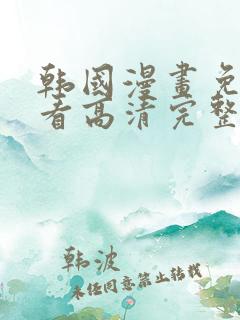 韩國漫畫免
看高清完整
韩波
未经同意禁止转载